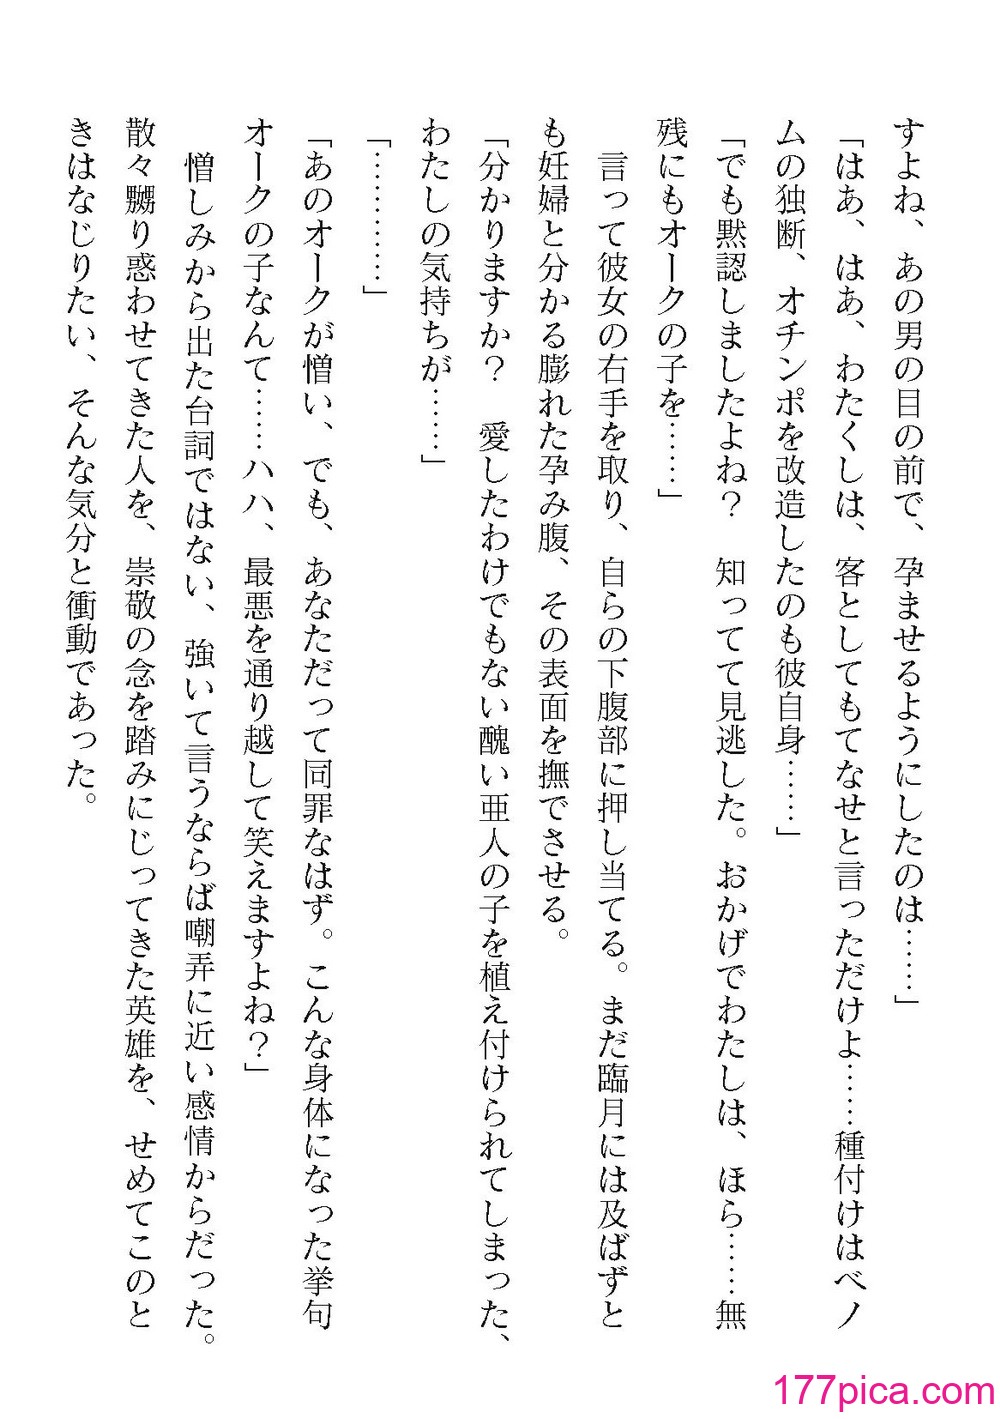 すよね、あの男の目の前で、孕ませるようにしたのは……」
「はあ、はあ、わたくしは、客としてもてなせと言っただけよ……種付けはベノ
ムの独断、オチンポを改造したのも彼自身……」
「でも黙認しましたよね？　知ってて見逃した。おかげでわたしは、ほら……無
残にもオークの子を……」
　言って彼女の右手を取り、自らの下腹部に押し当てる。まだ臨月には及ばずと
も妊婦と分かる膨れた孕み腹、その表面を撫でさせる。
「分かりますか？　愛したわけでもない醜い亜人の子を植え付けられてしまった、
わたしの気持ちが……」
「…………」
「あのオークが憎い、でも、あなただって同罪なはず。こんな身体になった挙句
オークの子なんて……ハハ、最悪を通り越して笑えますよね？」
　憎しみから出た台詞ではない、強いて言うならば嘲弄に近い感情からだった。
散々嬲り惑わせてきた人を、崇敬の念を踏みにじってきた英雄を、せめてこのと
きはなじりたい、そんな気分と衝動であった。
177pica.com